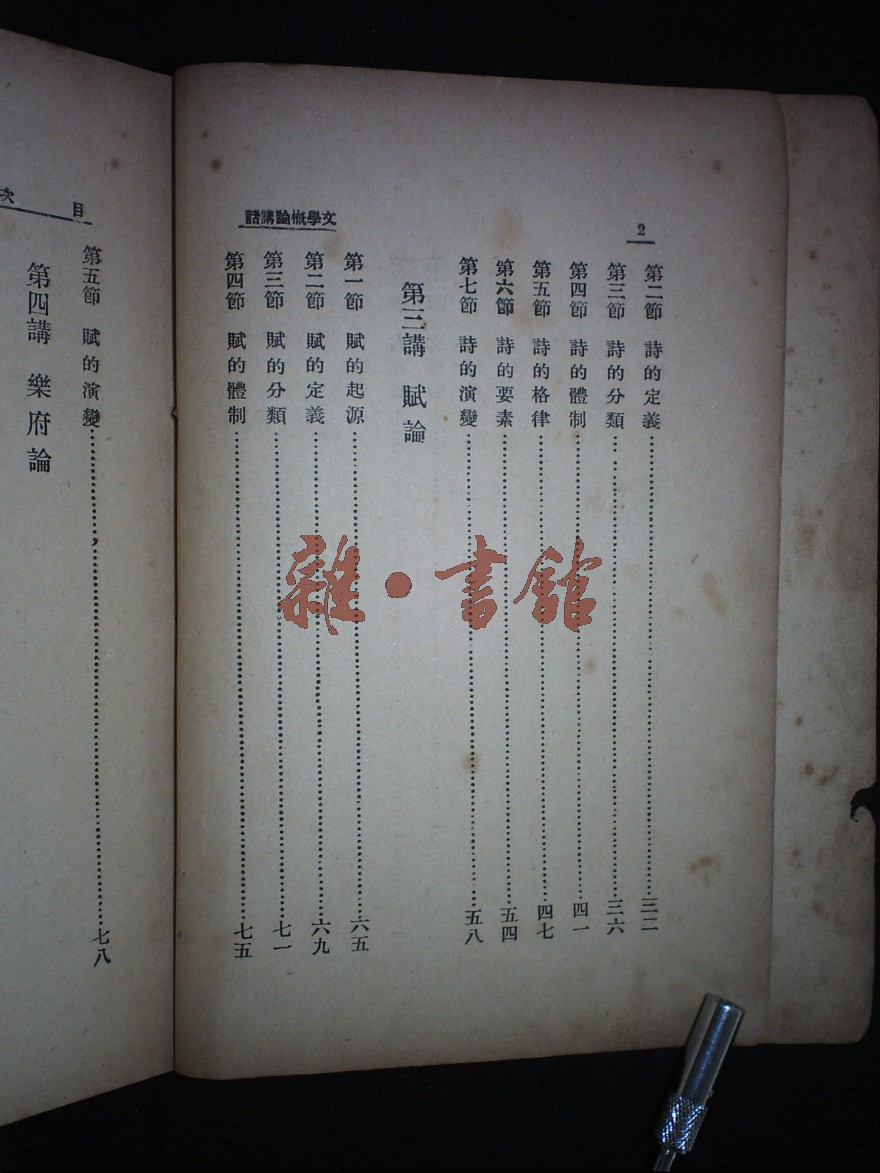 2
文學概論講話
第二節 詩的定義……三二
第三節 詩的分類……三六
第四節 詩的體制……四一
第五節 詩的格律……四七
第六節 詩的要素……五四
第七節 詩的演變……五八
第三講 賦論
第一節 賦的起源……六五
第二節 賦的定義……六九
第三節 賦的分類……七一
第四節 賦的體制……七五
目次
第五節 賦的演變……七八
第四講 樂府論
雜·書館